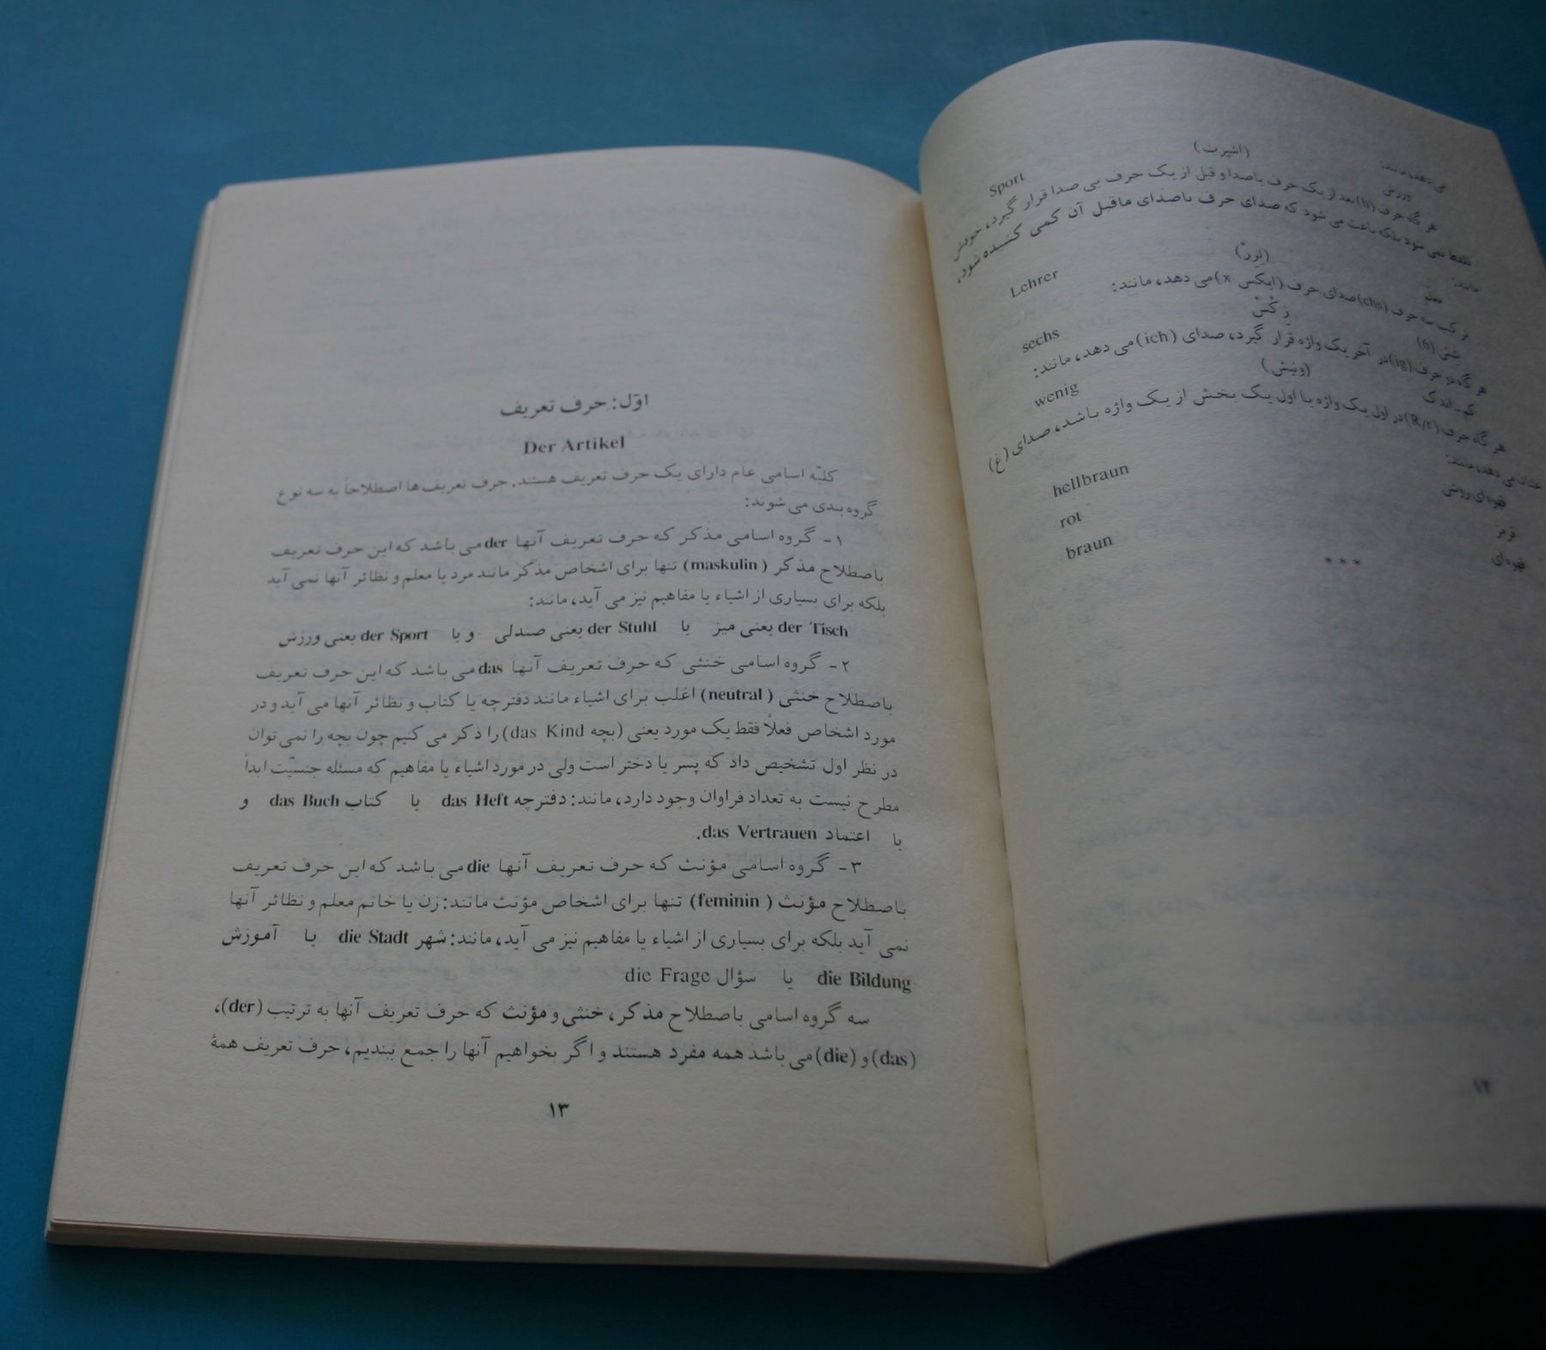 (اشپرت)
Sport ورزش
هر گاه حرف (h) بعد از یک حرف باصدا و قبل از یک حرف بی صدا قرار گیرد، خودش
تلفظ نمی شود بلکه باعث می شود که صدای حرف باصدای ماقبل آن کمی کشیده شود،
مانند:
(لِرر)
Lehrer معلم
ترکیب سه حرف (chs) صدای حرف (ایکس x) می دهد، مانند:
زِکْسْ
sechs شش (6)
هر گاه دو حرف (ig) در آخر یک واژه قرار گیرد، صدای (ich) می دهد، مانند:
(ونیش)
wenig کم - اندک
هر گاه حرف (R/r) در اول یک واژه یا اول یک بخش از یک واژه باشد، صدای (غ)
می دهد، مانند:
hellbraun قهوه‌ای روشن
rot قرمز
braun قهوه‌ای
***
۱۲
اوّل: حرف تعریف
Der Artikel
کلیّه اسامی عام دارای یک حرف تعریف هستند. حرف تعریف‌ها اصطلاحاً به سه نوع
گروه بندی می شوند:
۱- گروه اسامی مذکر که حرف تعریف آنها der می باشد که این حرف تعریف
باصطلاح مذکر (maskulin) تنها برای اشخاص مذکر مانند مرد یا معلم و نظائر آنها نمی آید
بلکه برای بسیاری از اشیاء یا مفاهیم نیز می آید، مانند:
der Tisch یعنی میز یا der Stuhl یعنی صندلی و یا der Sport یعنی ورزش
۲- گروه اسامی خنثی که حرف تعریف آنها das می باشد که این حرف تعریف
باصطلاح خنثی (neutral) اغلب برای اشیاء مانند دفترچه یا کتاب و نظائر آنها می آید و در
مورد اشخاص فعلاً فقط یک مورد یعنی (بچه das Kind) را ذکر می کنیم چون بچه را نمی توان
در نظر اول تشخیص داد که پسر یا دختر است ولی در مورد اشیاء یا مفاهیم که مسئله جنسیّت ابداً
مطرح نیست به تعداد فراوان وجود دارد، مانند: دفترچه das Heft یا کتاب das Buch و
یا اعتماد das Vertrauen.
۳- گروه اسامی مؤنث که حرف تعریف آنها die می باشد که این حرف تعریف
باصطلاح مؤنث (feminin) تنها برای اشخاص مؤنث مانند: زن یا خانم معلم و نظائر آنها
نمی آید بلکه برای بسیاری از اشیاء یا مفاهیم نیز می آید، مانند: شهر die Stadt یا آموزش
die Bildung یا سؤال die Frage
سه گروه اسامی باصطلاح مذکر، خنثی و مؤنث که حرف تعریف آنها به ترتیب (der)،
(das) و (die) می باشد همه مفرد هستند و اگر بخواهیم آنها را جمع ببندیم، حرف تعریف همهٔ
۱۳